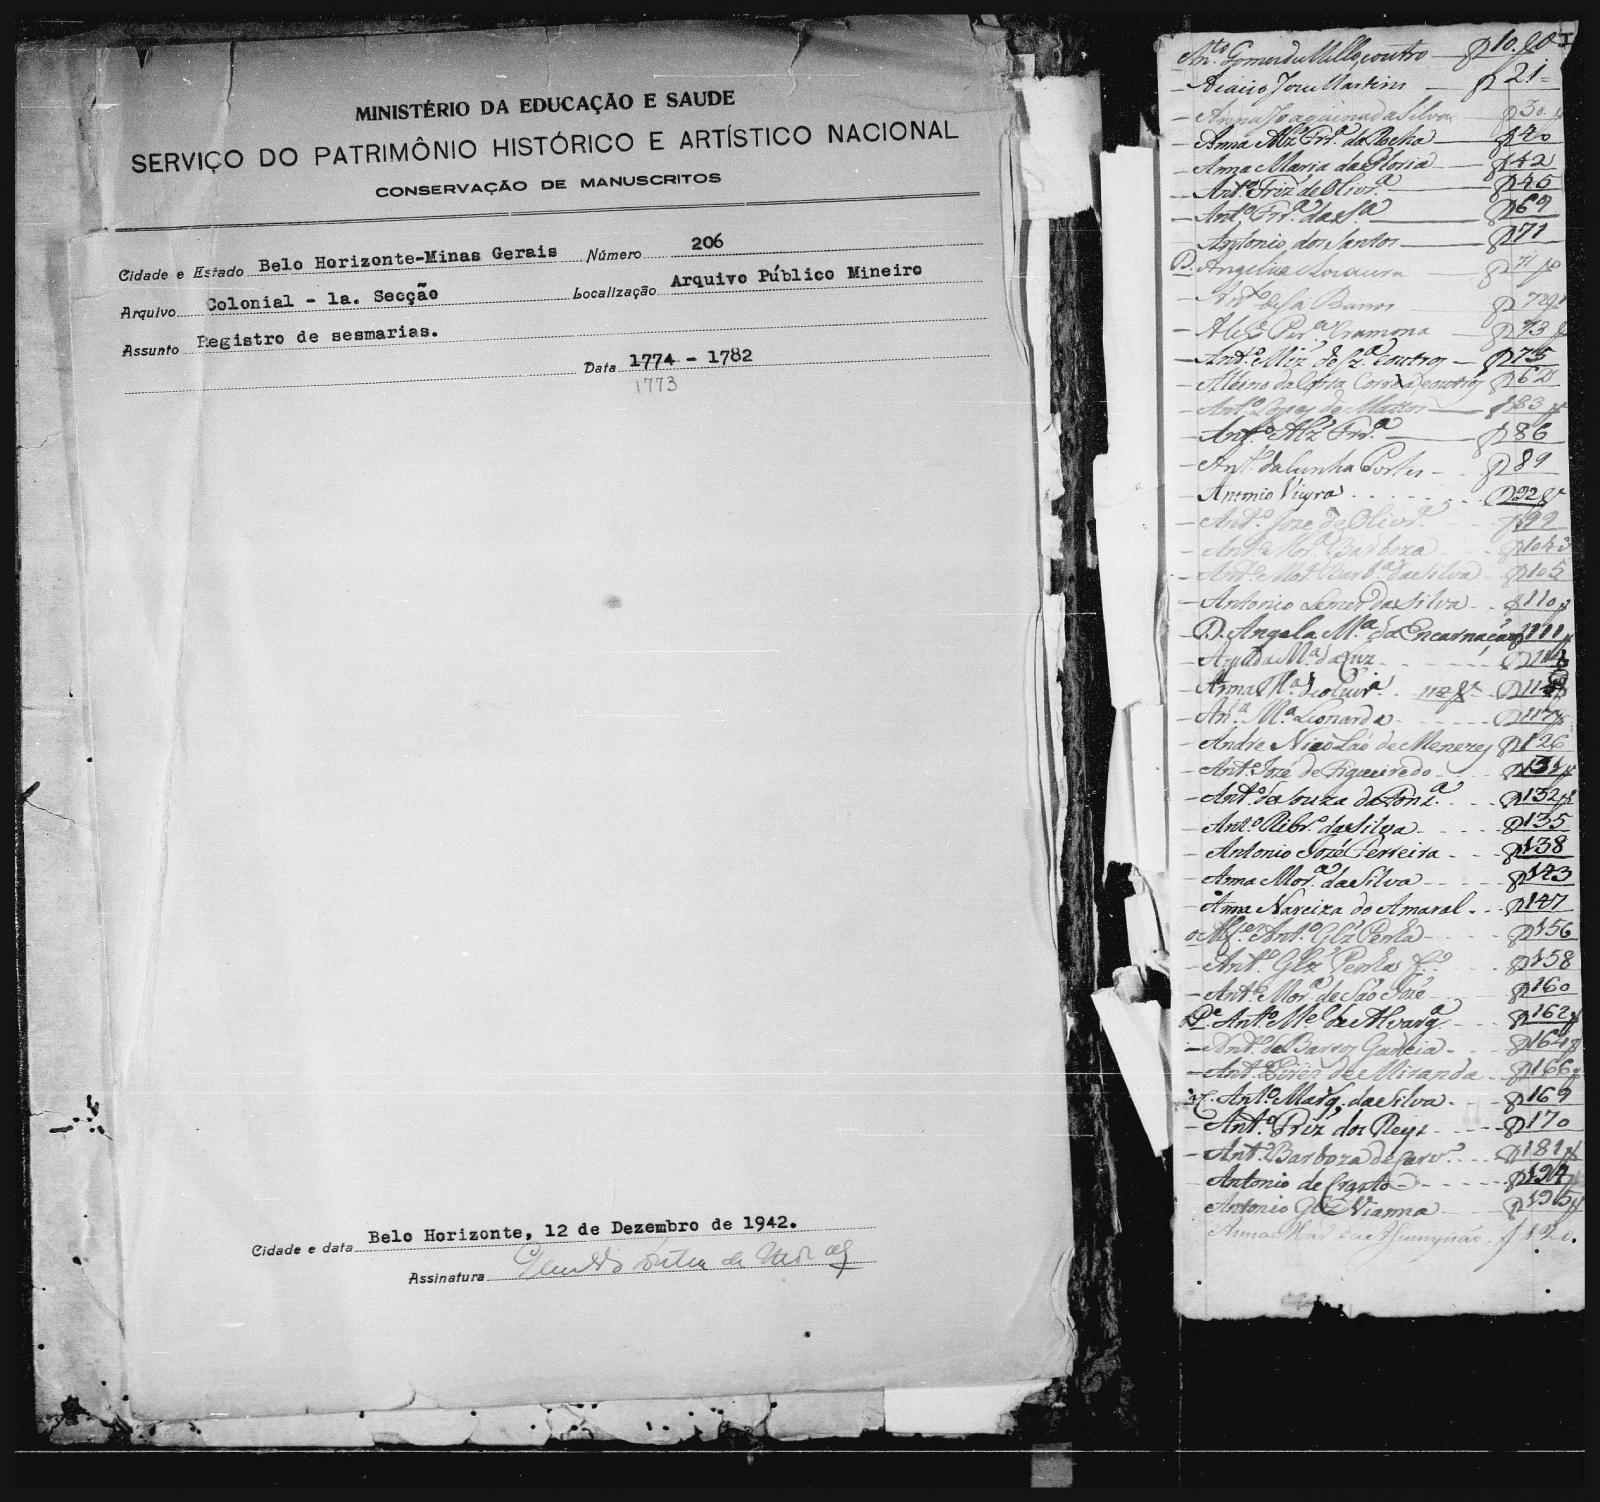 MINISTÉRIO DA EDUCAÇÃO E SAUDE
SERVIÇO DO PATRIMÔNIO HISTÓRICO E ARTÍSTICO NACIONAL
CONSERVAÇÃO DE MANUSCRITOS
Cidade e Estado Belo Horizonte-Minas Gerais Número 206
Arquivo Colonial - 1a. Secção Localização Arquivo Público Mineiro
Assunto Registro de sesmarias.
Data 1774 - 1782
1773
Cidade e data Belo Horizonte, 12 de Dezembro de 1942.
Assinatura
Anto. Gomes de Mello, e outro
Joze Martins 21
Anna Joaquina da Silva 30
Anna Alz Frr.a da Rocha 40
Anna Maria da Gloria 42
Ant.o Friz de Olivr.a 45
Ant.o Frr.a da S.a 69
Antonio dos Santos 71
D. Angelica 71
Ant.o de Sa Barros 72
Per.a Gramona 73
Ant.o Miz de e outros 75
Albino da Costa Correa e outros 62
Ant.o Lopes de Mattos 83
Ant.o Alz Frr.a 86
Ant.o da Cunha Portes 89
Antonio Vieyra 92
Ant.o Joze de Olivr.a 99
Ant.o Mor.a Barboza 104
Ant.o Mor.a Barb.a da Silva 105
Antonio Lemes da Silva 110
D. Angela M.a da Encarnação 111
Agueda M.a da Luz 114
Anna M.a de Oliveir.a 112
An.a M.a Leonarda 117
Andre Nicoláo de Menezes 126
Ant.o Jozé de Figueiredo 131
Ant.o de Souza da Fons.a 132
Ant.o Ribr.o da Silva 135
Antonio Jozé Ferreira 138
Anna Mor.a da Silva 143
Anna Narciza do Amaral 147
Ant.o Glz Penha 156
Ant.o Glz Penha f.o 158
Ant.o Mor.a de São Joze 160
P.e Ant.o M.el de Alvarg.a 162
Ant.o de Barros Garcia 164
Ant.o Pires de Miranda 166
Ant.o Marq. da Silva 169
Ant.o Friz dos Reys 170
Ant.o Barboza de Carv.o 181
Antonio de Crasto 194
Antonio Glz Vianna 195
Anna 120